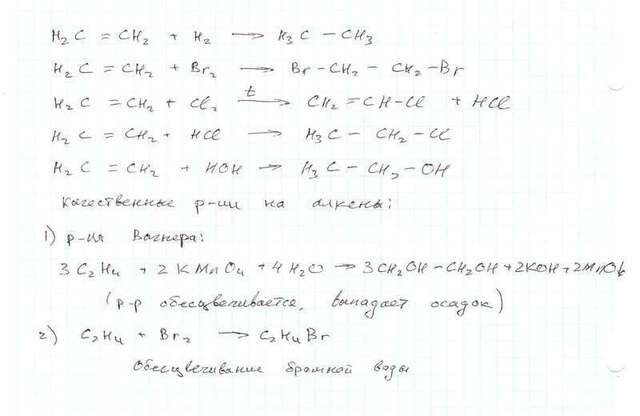 H₂C = CH₂ + H₂ → H₃C – CH₃
H₂C = CH₂ + Br₂ → Br – CH₂ – CH₂ – Br
H₂C = CH₂ + Cl₂ →t CH₂ = CH – Cl + HCl
H₂C = CH₂ + HCl → H₃C – CH₂ – Cl
H₂C = CH₂ + HOH → H₃C – CH₂ – OH
Качественные р-ии на алкены:
1) р-ия Вагнера:
3C₂H₄ + 2KMnO₄ + 4H₂O → 3CH₂OH – CH₂OH + 2KOH + 2MnO₂
(р-р обесцвечивается, выпадает осадок)
2) C₂H₄ + Br₂ → C₂H₄Br
Обесцвечивание бромной воды